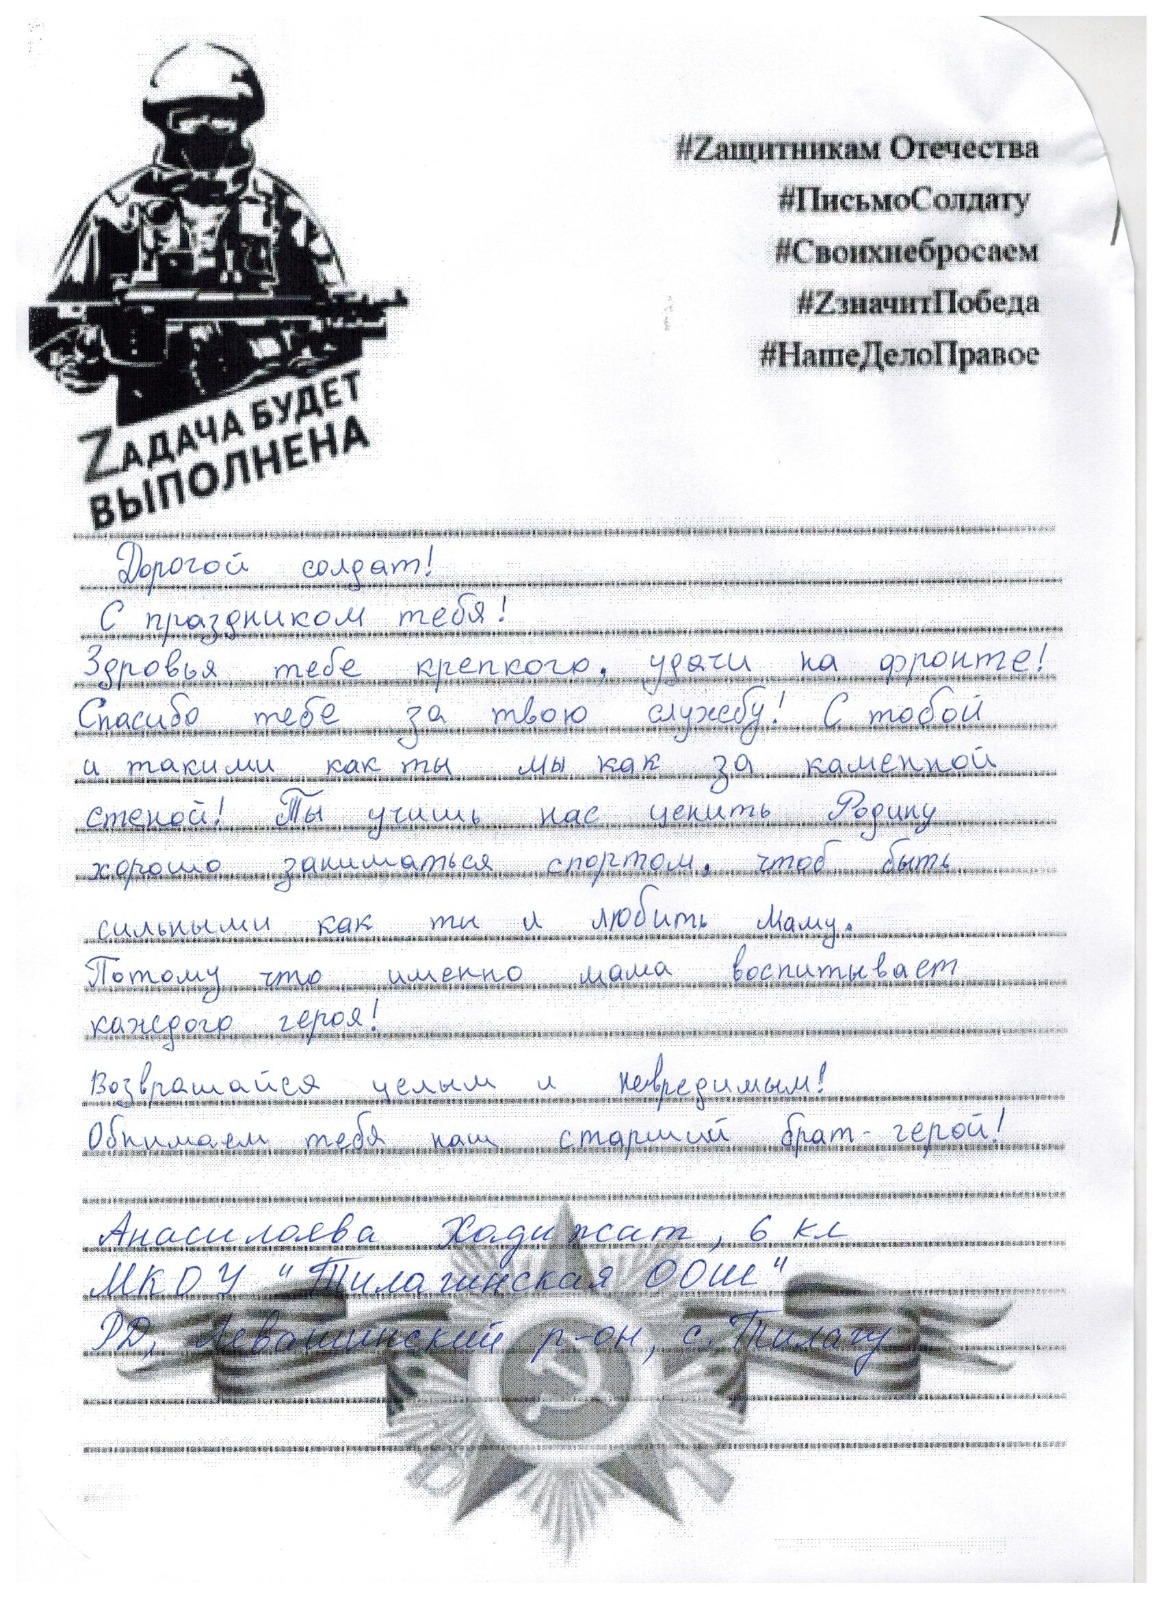 #Zащитникам Отечества
#ПисьмоСолдату
#Своихнебросаем
#ZзначитПобеда
#НашеДелоПравое
ZАДАЧА БУДЕТ
ВЫПОЛНЕНА
Дорогой солдат!
С праздником тебя!
Здровья тебе крепкого, удачи на фронте!
Спасибо тебе за твою службу! С тобой
и такими как ты мы как за каменной
стеной! Ты учишь нас ценить Родину
хорошо заниматься спортом, чтоб быть
сильными как ты и любить маму.
Потому что именно мама воспитывает
каждого героя!
Возврашайся целым и невредимым!
Обнимаем тебя наш старший брат-герой!
Хадижат, 6 кл
МКОУ "Тилагинская ООШ"
РД, Левашинский р-он, с. Тилагу